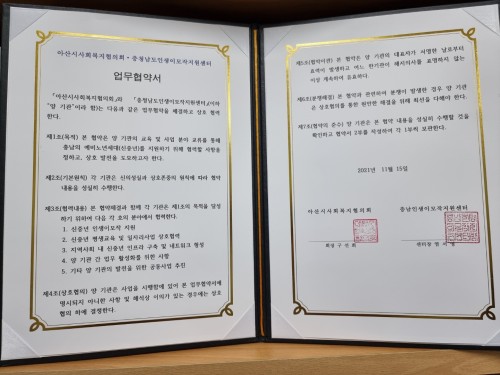 아산시사회복지협의회 · 충청남도인생이모작지원센터
업무협약서
「아산시사회복지협의회」와 「충청남도인생이모작지원센터」(이하
"양 기관"이라 함)는 다음과 같은 업무협약을 체결하고 상호 협력
한다.
제1조(목적) 본 협약은 양 기관의 교육 및 사업 분야 교류를 통해
충남의 예비노년세대(신중년)를 지원하기 위해 협력할 사항을
정하고, 상호 발전을 도모하고자 한다.
제2조(기본원칙) 각 기관은 신의성실과 상호존중의 원칙에 따라 협약
내용을 성실히 수행한다.
제3조(협약내용) 본 협약체결과 함께 각 기관은 제1조의 목적을 달성
하기 위하여 다음 각 호의 분야에서 협력한다.
1. 신중년 인생이모작 지원
2. 신중년 평생교육 및 일자리사업 상호협력
3. 지역사회 내 신중년 인프라 구축 및 네트워크 형성
4. 양 기관 간 업무 활성화를 위한 사항
5. 기타 양 기관의 발전을 위한 공동사업 추진
제4조(상호협의) 양 기관은 사업을 시행함에 있어 본 업무협약서에
명시되지 아니한 사항 및 해석상 이의가 있는 경우에는 상호
협의 하에 결정한다.
제5조(협약기간) 본 협약은 양 기관의 대표자가 서명한 날로부터
효력이 발생하고 어느 한기관이 해지의사를 표명하지 않는
이상 계속하여 유효하다.
제6조(분쟁해결) 본 협약과 관련하여 분쟁이 발생한 경우 양 기관
은 상호협의를 통한 원만한 해결을 위해 최선을 다해야 한다.
제7조(협약의 준수) 양 기관은 본 협약 내용을 성실히 수행할 것을
확인하고 협약서 2부를 작성하여 각 1부씩 보관한다.
2021년 11월 15일
아산시사회복지협의회 충남인생이모작지원센터
회장 센터장